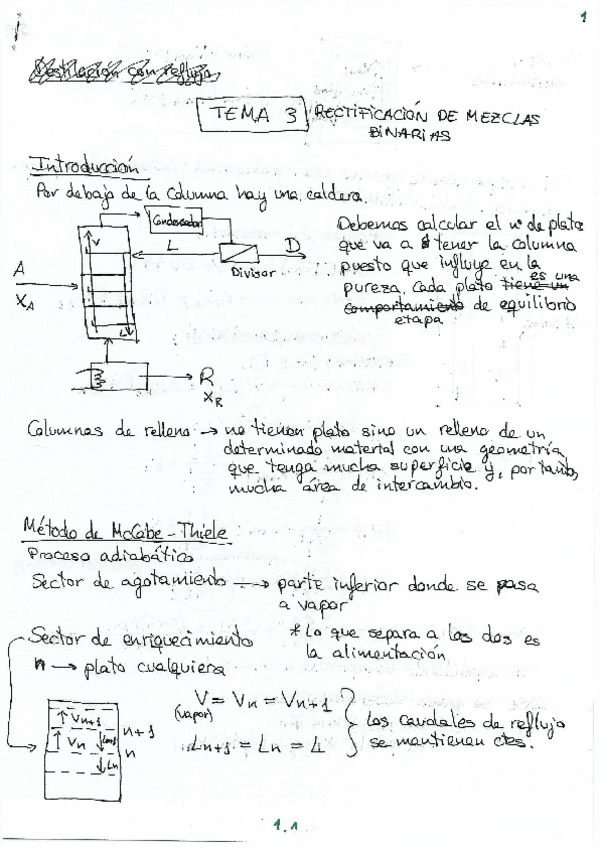 1
Destilación con reflujo
TEMA 3 RECTIFICACIÓN DE MEZCLAS
BINARIAS
Introducción
Por debajo de la columna hay una caldera.
Condensador
V
L
D
Divisor
A
XA
L
R
XR
Debemos calcular el nº de platos
que va a tener la columna
puesto que influye en la
pureza. Cada plato tiene un es una
comportamiento de equilibrio
etapa
Columnas de relleno → no tienen plato sino un relleno de un
determinado material con una geometría
que tenga mucha superficie y, por tanto,
mucha área de intercambio.
Método de McCabe-Thiele
Proceso adiabático
Sector de agotamiento → parte inferior donde se pasa
a vapor
Sector de enriquecimiento
* Lo que separa a los dos es
la alimentación
n → plato cualquiera
V = Vn = Vn+1
(vapor)
Ln+1 = Ln = L
los caudales de reflujo
se mantienen ctes.
Vn+1
Ln+1
n+1
Vn
n
Ln
1.1